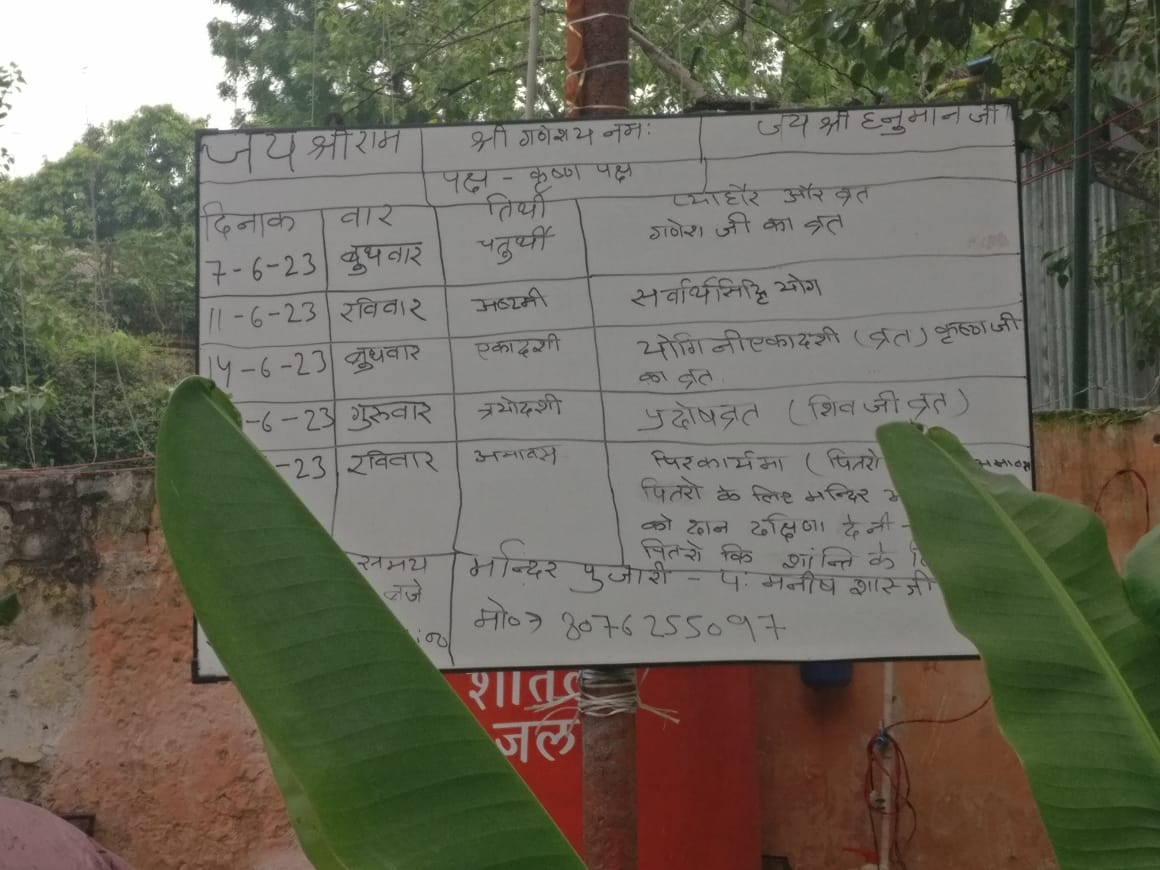 जय श्री राम श्री गणेशय नमः जय श्री हनुमान जी
पक्ष - कृष्ण पक्ष
दिनाक वार तिथी त्योहौर और व्रत
7-6-23 बुधवार चतुर्थी गणेश जी का व्रत
11-6-23 रविवार अष्टमी सर्वार्थसिद्धि योग
14-6-23 बुधवार एकादशी योगिनीएकादशी (व्रत) कृष्णजी
का व्रत
-6-23 गुरुवार त्रयोदशी प्रदोषव्रत (शिवजी व्रत)
-23 रविवार अमावस (पितरो अमावस
पितरो के लिए मन्दिर
को दान दक्षिणा देनी
पितरो कि शांन्ति के
समय मन्दिर पुजारी - पं: मनीष शास्त्री
बजे
मो० 8076255097
शीतल
जल